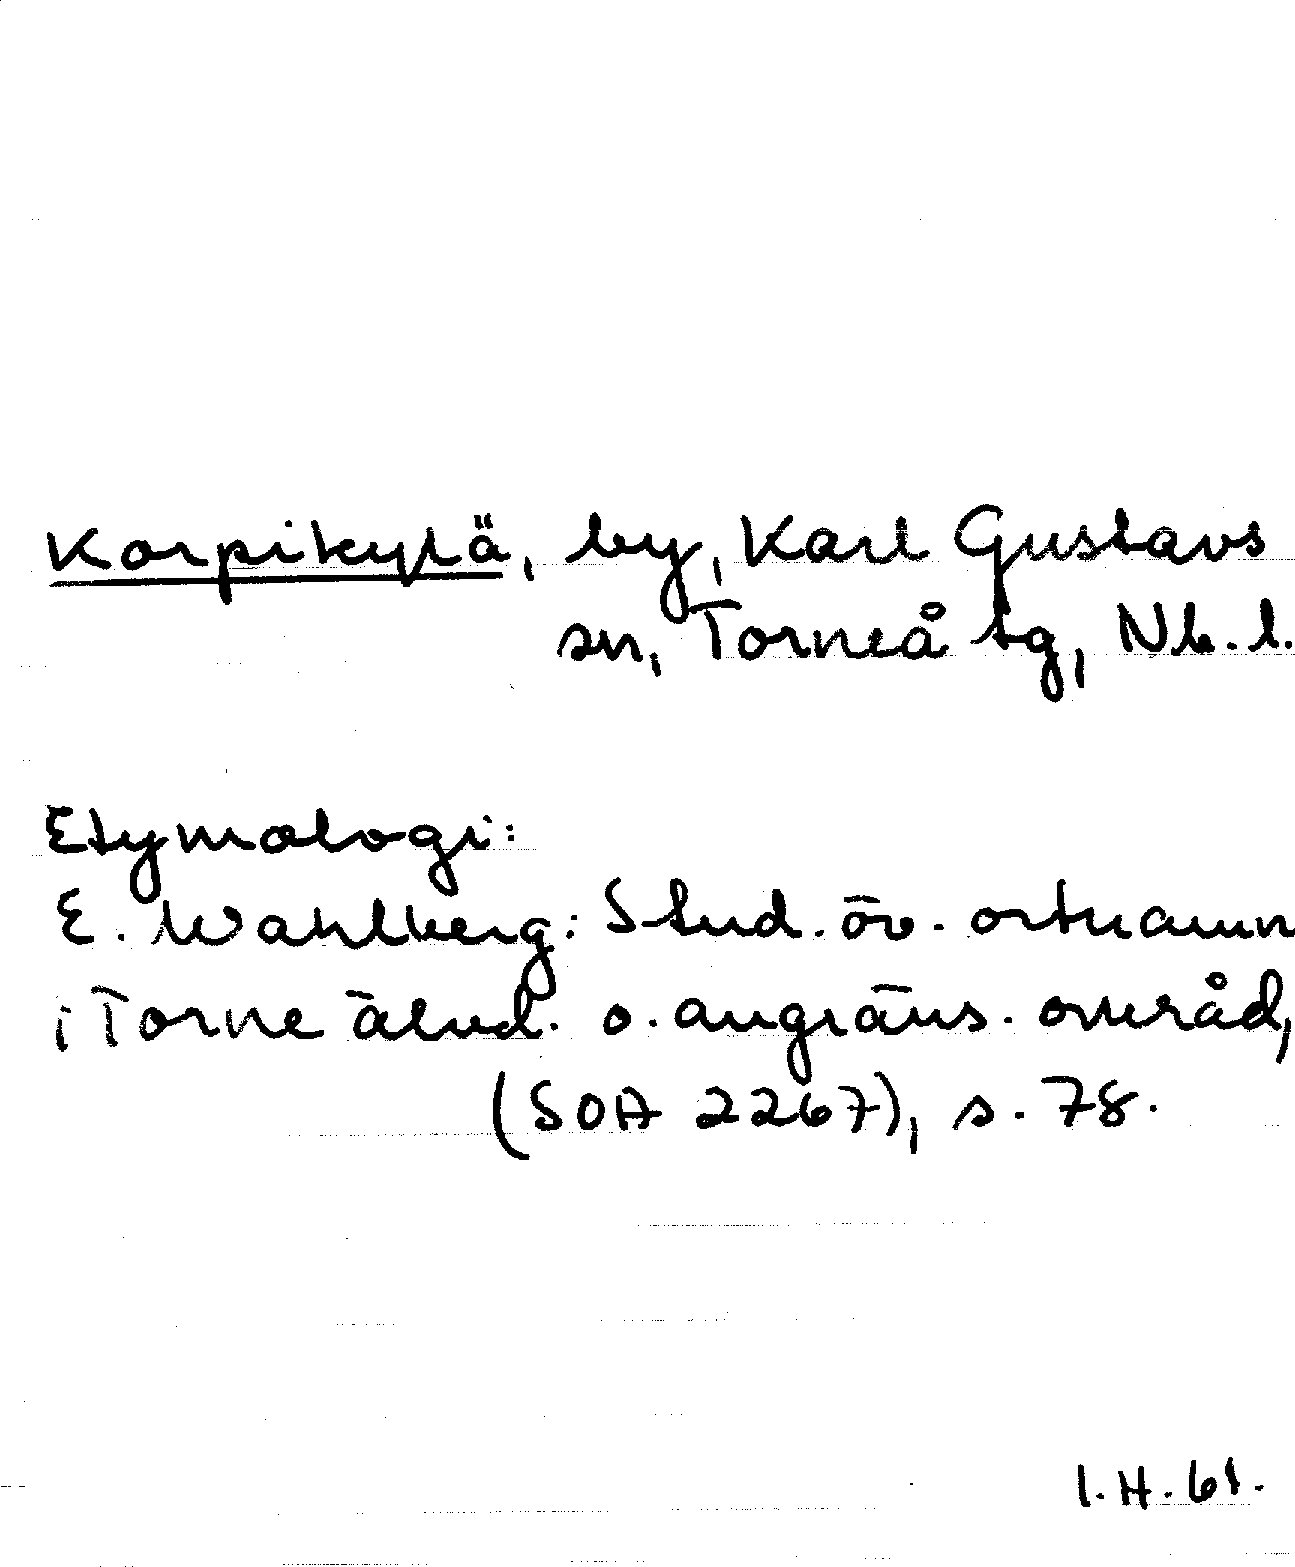 Korpikylä, by, Karl Gustavs
sn, Torneå tg, Nb. l.
Etymologi:
E. Wahlberg: Stud. öv. ortnamn
i Torne älvd. o. angräns. område,
(SOA 2267), s. 78.
I.H. 61.